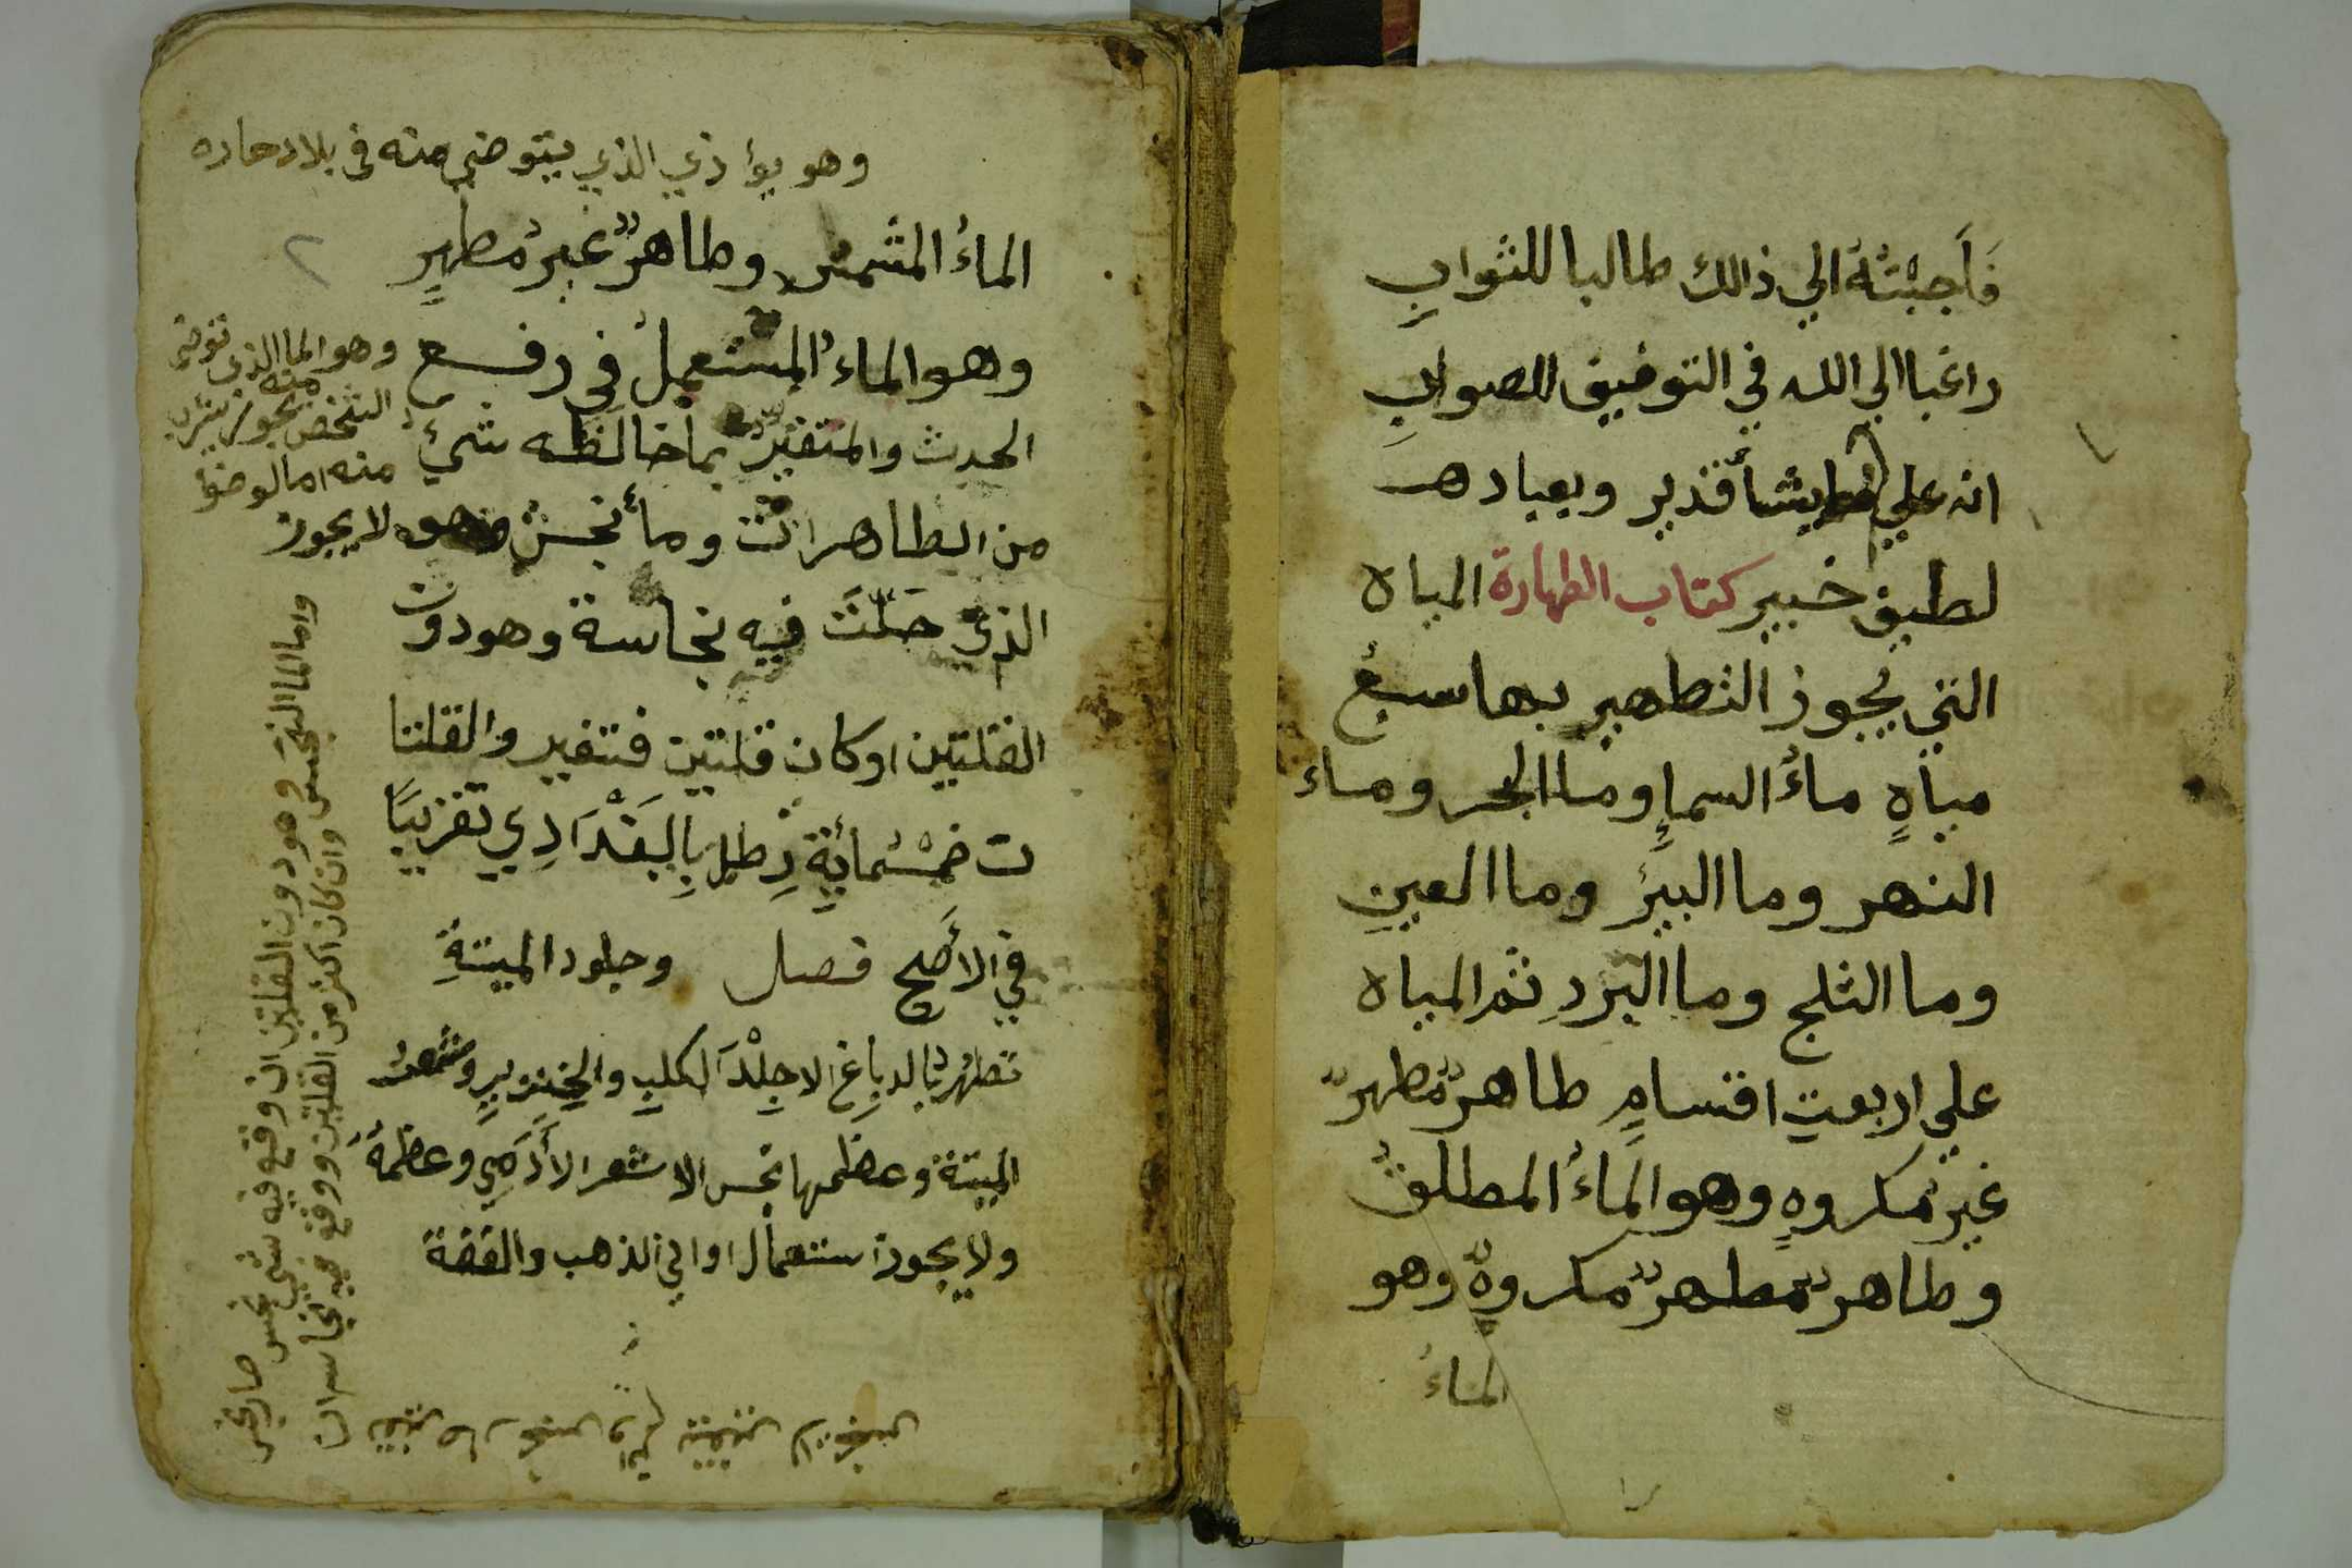 فَأَجبْتُهُ الي ذالك طالبا للثوابِ
راغبا الي الله في التوفيق للصوابِ
انه علي ما يشأ قدير وبعباده
لطيف خبير كتاب الطهارة المياه
التي يجوز التطهير بها سبعُ
مياهٍ ماءُ السماءِ وما البحر وماء
النهر وما البيرُ وما العينِ
وما الثلج وما البَردِ ثم المياه
علي اربعتِ اقسامٍ طاهرٌ مطهرٌ
غير مكروهٍ وهو الماءُ المطلقُ
وطاهرٌ مطهرٌ مكروهٌ وهو
الماءُ
وهو يؤاذي الذي يتوضي منه في بلاد حاره
٢
الماءُ المشمس وطاهرٌ غيرُ مطهرٍ
وهو الماءُ المستعملُ في رفع
الحدث والمتغيرُ بما خالطه شيءٌ
من الطاهرات وماءٌ نجسٌ وهو
الذي حَلَّتَ فيه نجاسة وهو دون
القلتين او كان قلتين فتغير والقلتا
ن خمْسُمائةِ رِطلٍ بِالبَغْدَادِي تقريبًا
في الأَصح فصل وجلود الميتةِ
تطهُرُ بالدباغ الا جِلْدَ الكلبِ والخِنزيرِ وشعرُ
الميتة وعظمها نجس الا شعر الأَدَمِي وعظمهُ
ولا يجوز استعمال اواني الذهب والفضة
وهو الما الذي توضي
منه
الشخص يجوز شرب
منه اما الوضوا
لا يجوز
واما الما النجس وهو دون القلتين ان وقع فيه شي نجس صار نجس
وان كان اكثر من القلتين ووقع فيه نجاسه ان